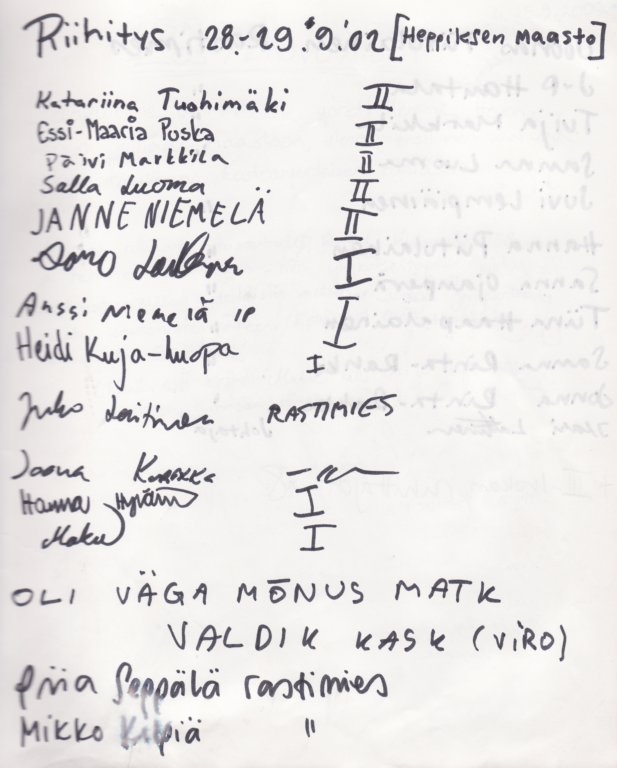 Riihitys 28.-29.9.'02 [Heppiksen Maasto]
Katariina Tuohimäki II
Essi-Maaria Puska II
Päivi Markkila II
Salla Luoma II
JANNE NIEMELÄ II
I
Anssi Niemelä IP I
Heidi Kuja-Luopa I
Juho Laitinen RASTIMIES
Joona —"—
Hanna I
I
OLI VÄGA MÕNUS MATK
VALDIK KASK (VIRO)
Piia Seppälä rastimies
Mikko "